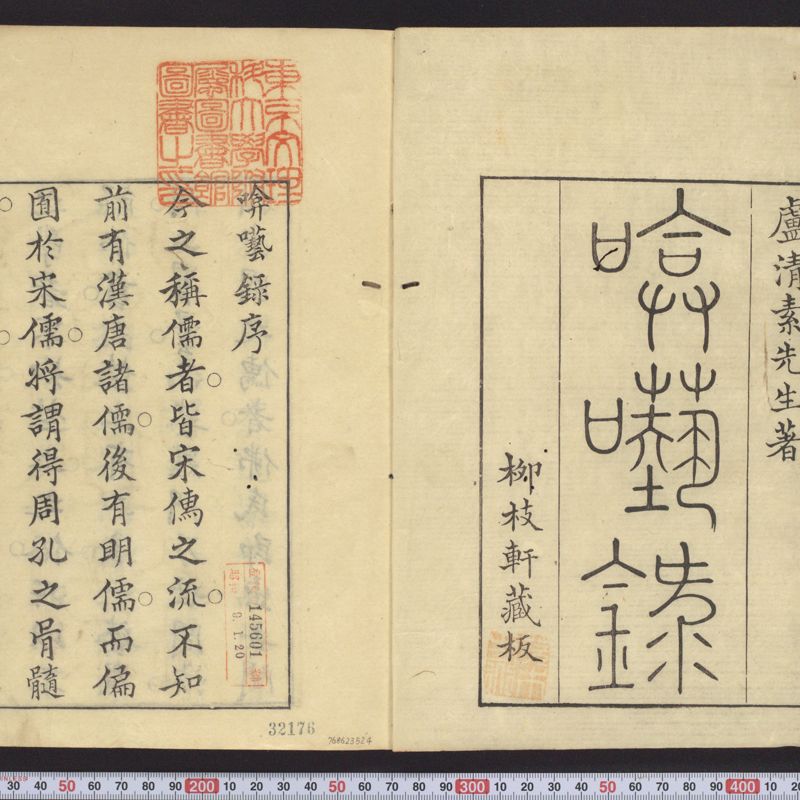 盧清素先生著
啽囈錄
柳枝軒藏板
東京文理
科大學附
屬圖書館
圖書之印
啽囈錄序
今之稱儒者皆宋儒之流不知
前有漢唐諸儒後有明儒而偏
囿於宋儒將謂得周孔之骨髓
145601
1.20
32176
768623524
30 40 50 60 70 80 90 200 10 20 30 40 50 60 70 80 90 300 10 20 30 40 50 60 70 80 90 400 10 20